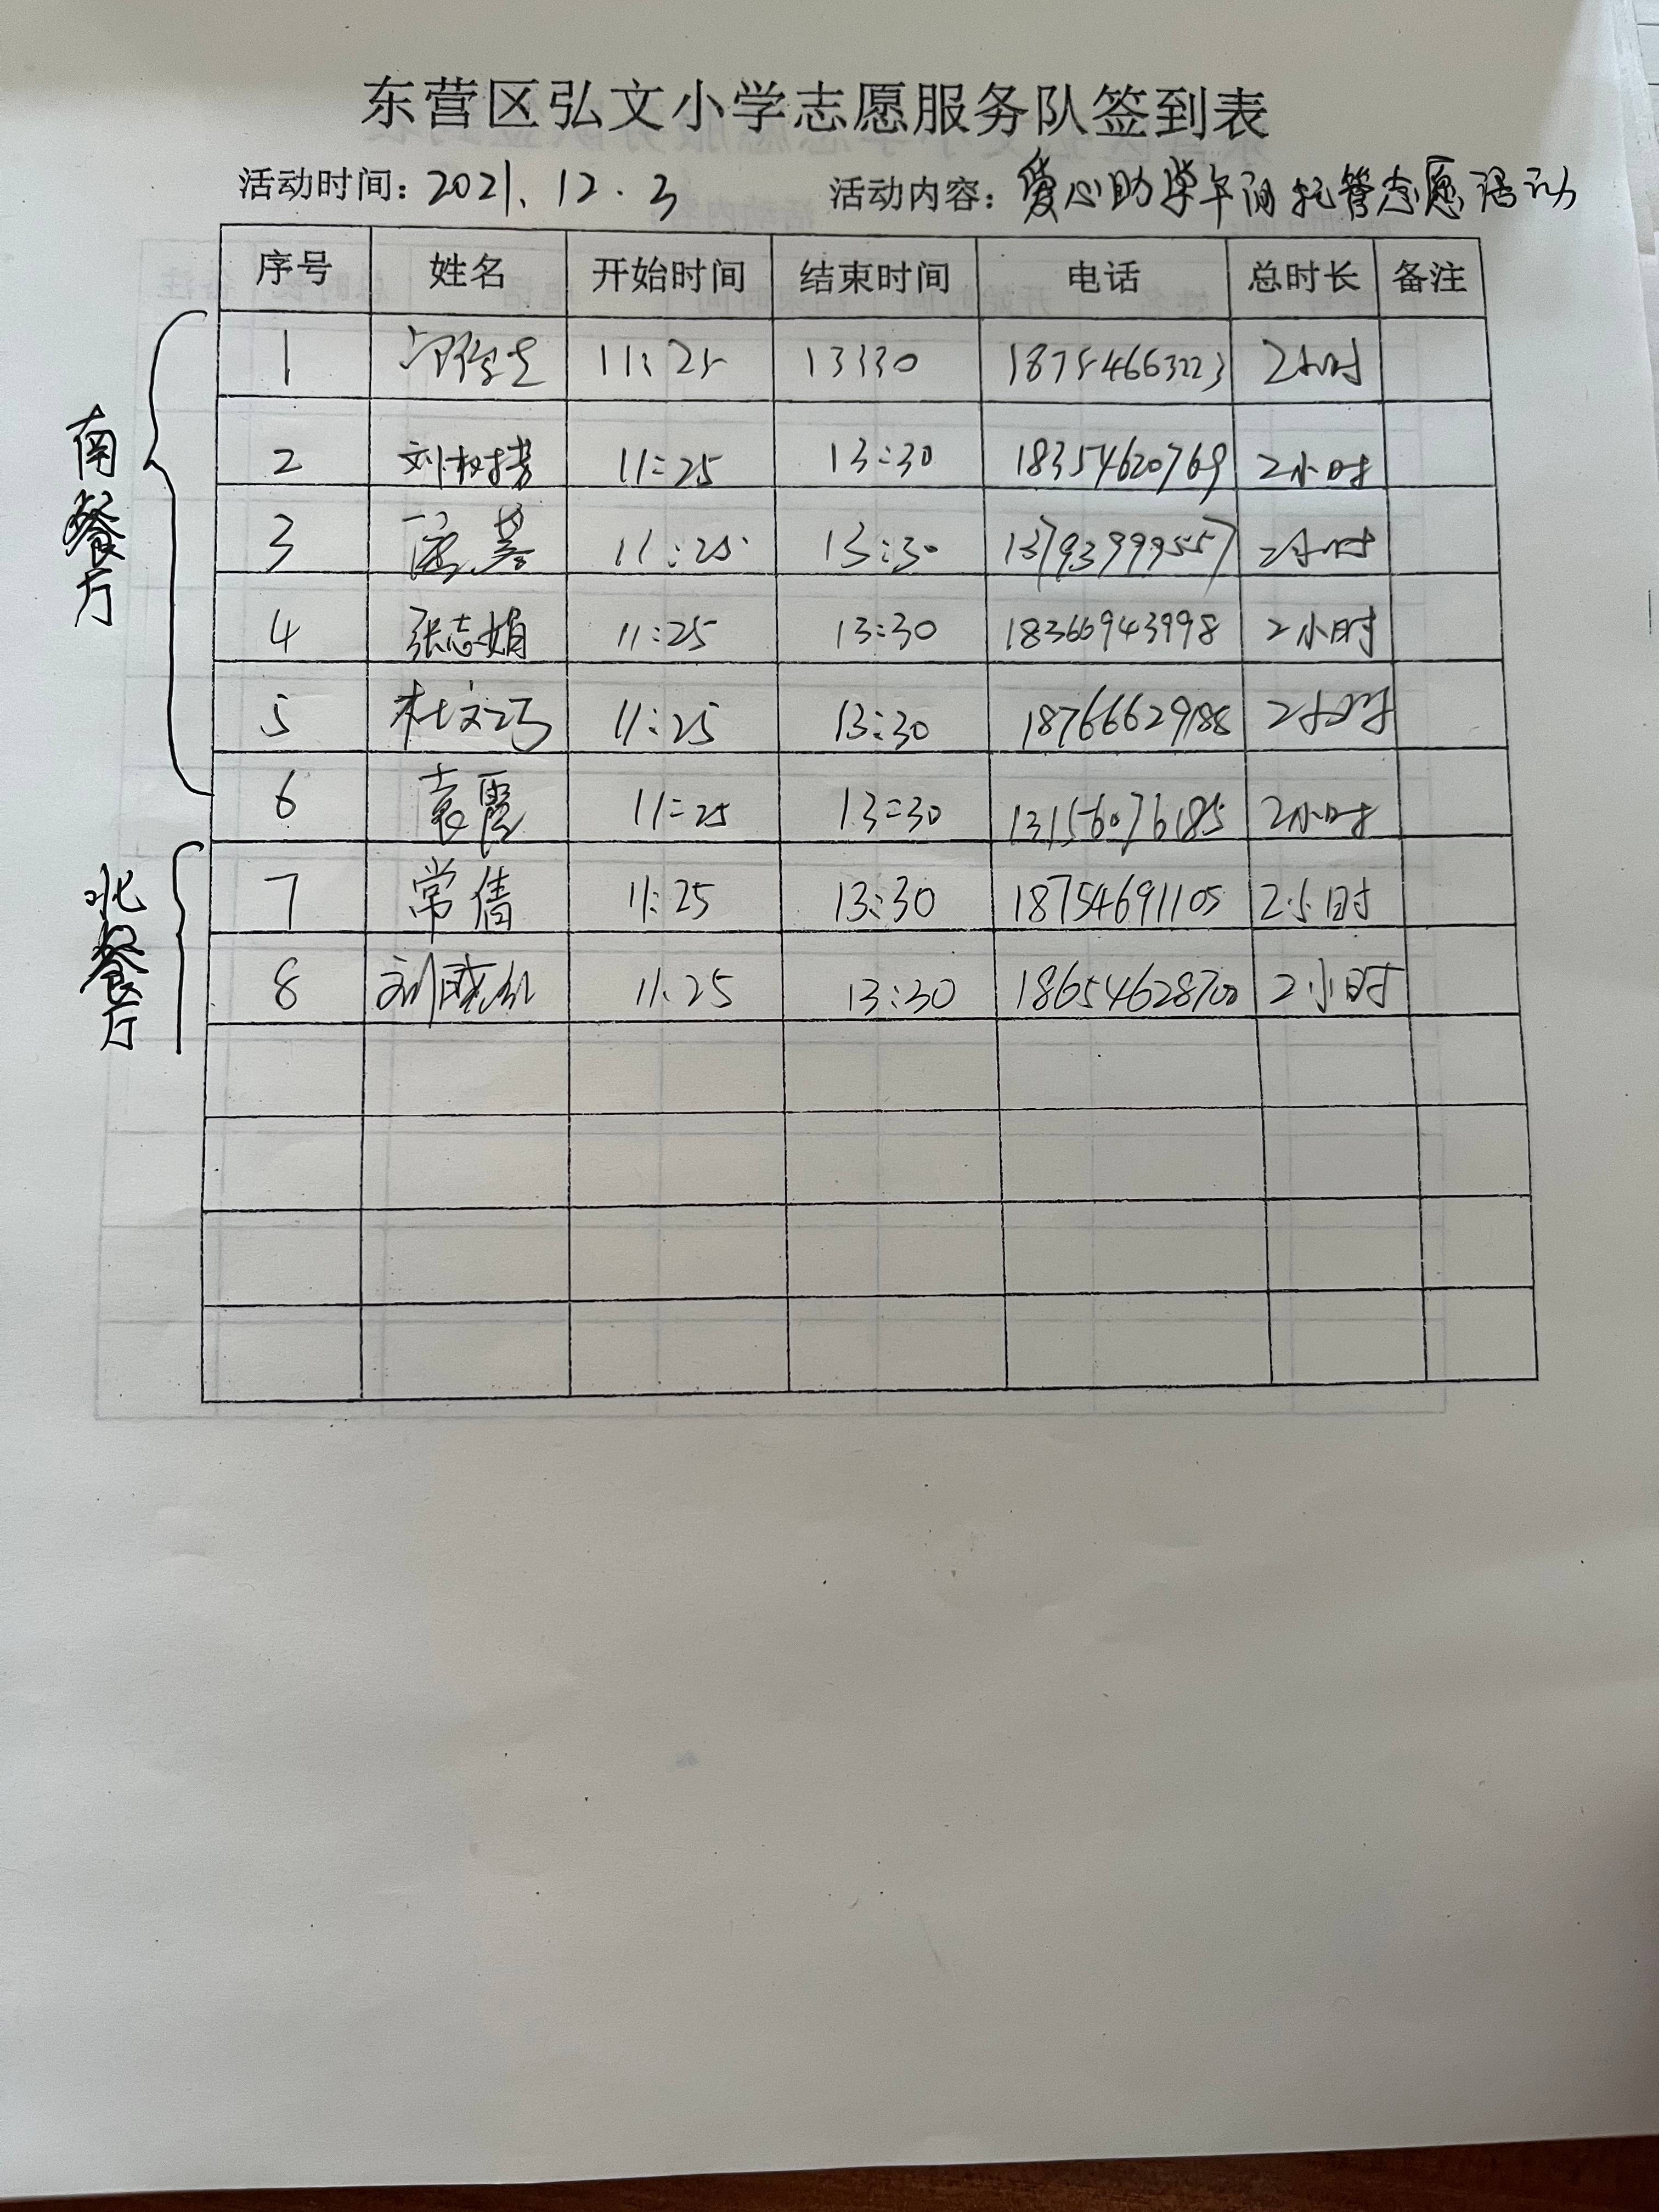 东营区弘文小学志愿服务队签到表
活动时间：2021.12.3 活动内容：爱心助学午间托管志愿活动
序号 姓名 开始时间 结束时间 电话 总时长 备注
南餐厅
1 11:25 13:30 18754663223 2小时
2 刘树芳 11:25 13:30 18354620769 2小时
3 11:25 13:30 13793999557 2小时
4 张志娟 11:25 13:30 18366943998 2小时
5 杜文巧 11:25 13:30 18766629188 2小时
6 袁霞 11:25 13:30 13156076185 2小时
北餐厅
7 常倩 11:25 13:30 18754691105 2小时
8 刘晓红 11:25 13:30 18654628700 2小时